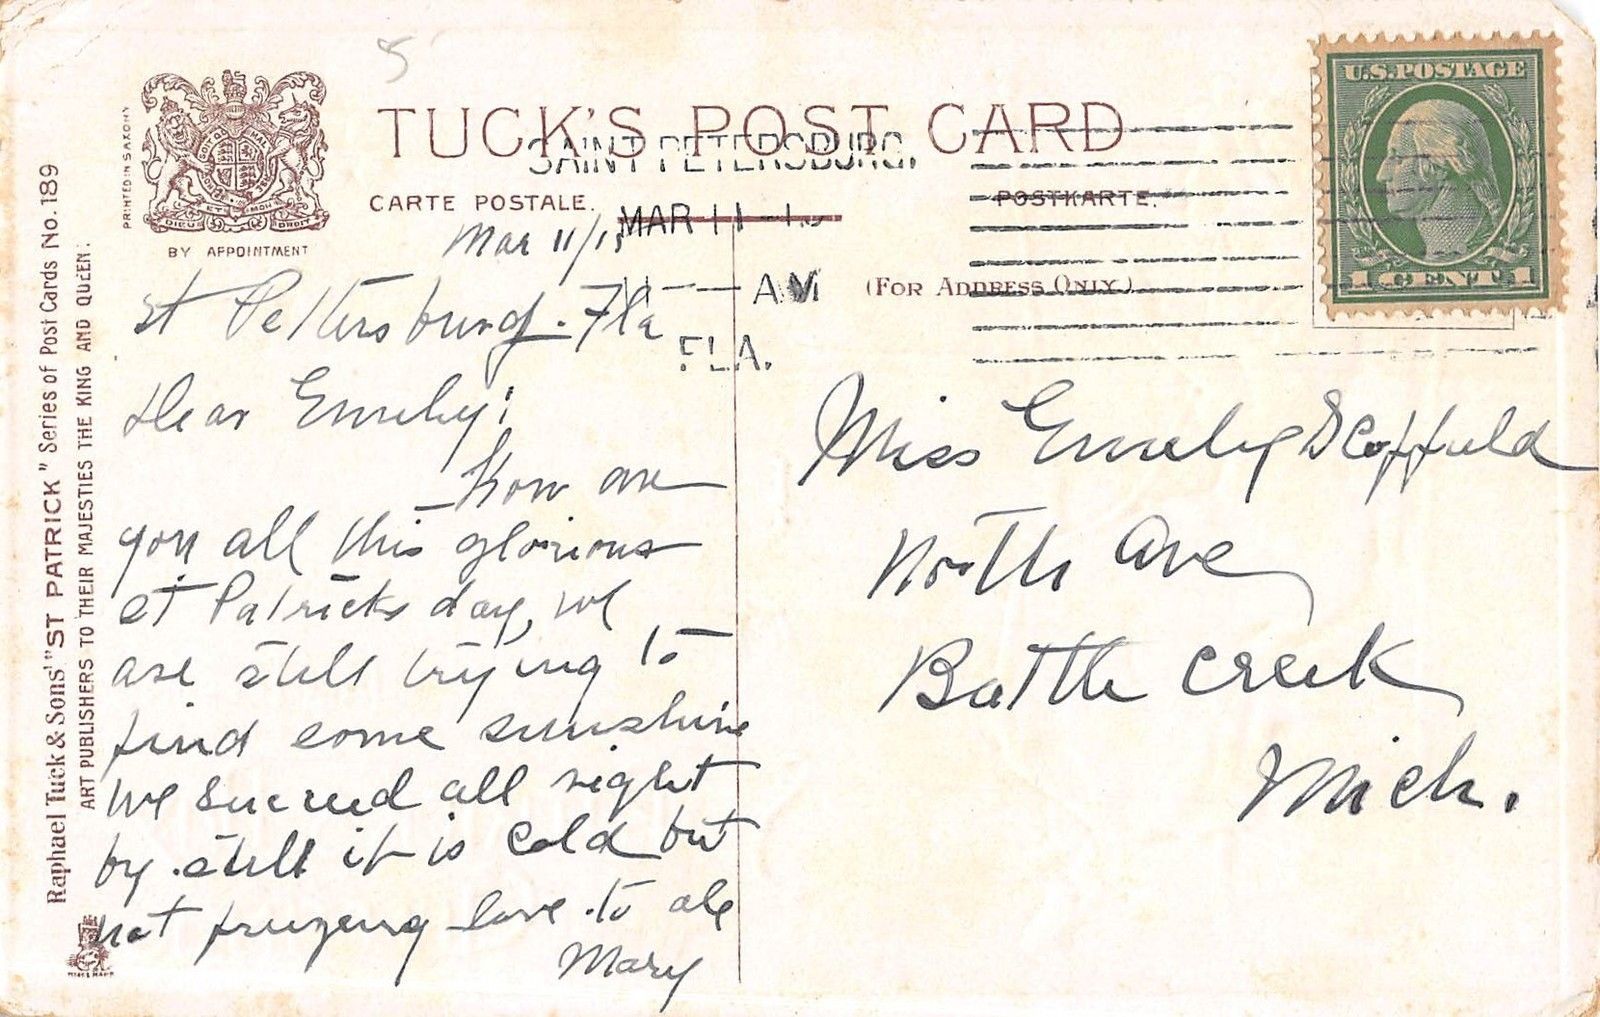 5
TUCK'S POST CARD
SAINT PETERSBURG,
CARTE POSTALE.
POSTKARTE.
MAR 11
AM
FLA.
(FOR ADDRESS ONLY.)
U.S. POSTAGE
1 CENT 1
PRINTED IN SAXONY
DIEU ET MON DROIT
BY APPOINTMENT
Raphael Tuck & Sons' "ST PATRICK" Series of Post Cards No. 189
ART PUBLISHERS TO THEIR MAJESTIES THE KING AND QUEEN.
Mar 11/15
St Petersburg. Fla
Dear Emely;
How are
you all this glorious
St Patricks day, we
are still trying to
find some sunshine
we succeed all right
by still it is cold but
not freezeing love to all
Mary
Miss Emely Scoffield
North Ave
Battle Creek
Mich.